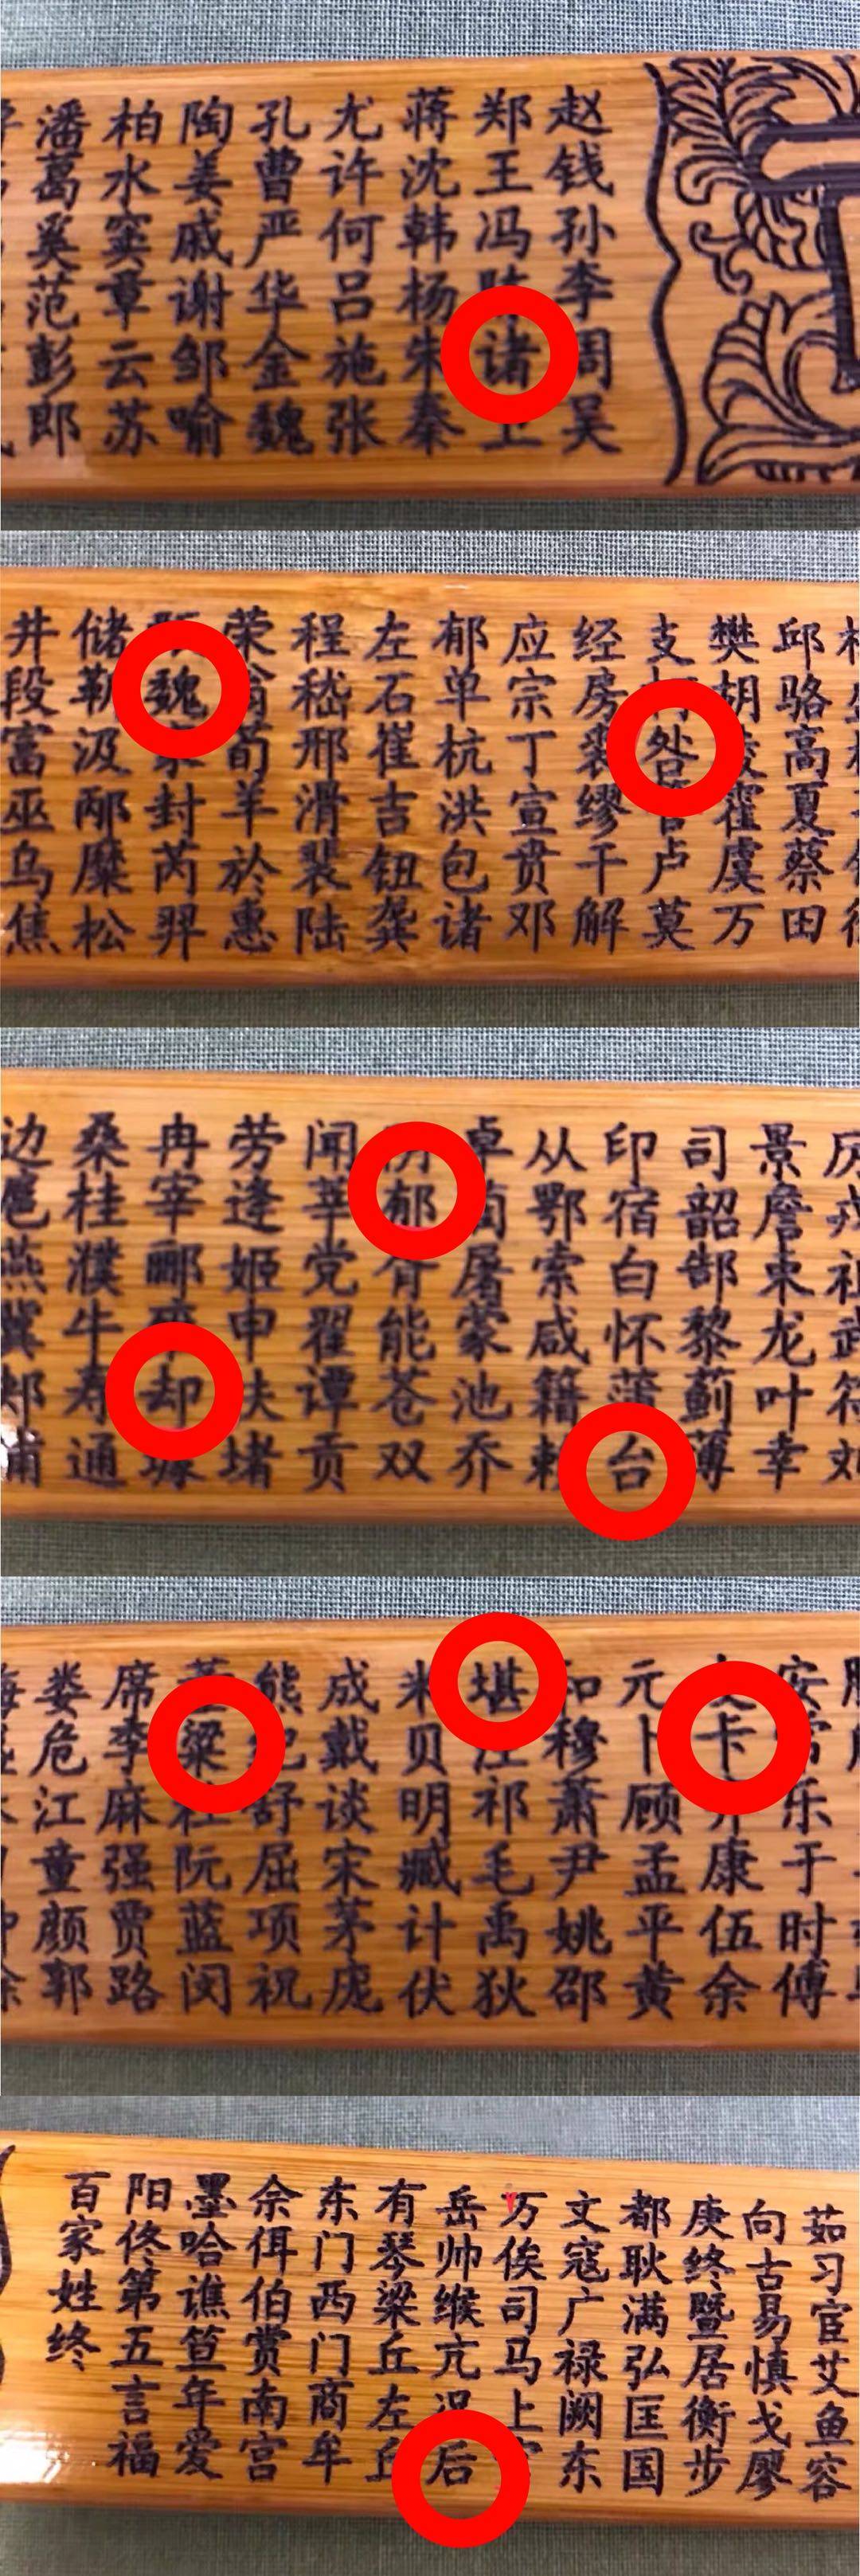 赵钱孙李周吴
郑王冯诸卫
蒋沈韩杨朱秦
尤许何吕施张
孔曹严华金魏
陶姜戚谢邹喻
柏水窦章云苏
潘葛奚范彭郎
邱骆高夏蔡田
樊胡霍虞万
支咎卢莫
经房裘缪干解
应宗丁宣贲邓
郁单杭洪包诸
左石崔吉钮龚
程嵇邢滑裴陆
荣翁荀羊於惠
魏封芮羿
储靳汲邴糜松
井段富巫乌焦
景詹束龙叶幸
司韶郜黎蓟薄
印宿白怀蒲台
从鄂索咸籍赖
卓蔺屠蒙池乔
郁胥能苍双
闻莘党翟谭贡
劳逢姬申扶堵
冉宰郦却
桑桂濮牛寿通
边扈燕冀
安乐于时傅
卡康伍余
元卜顾孟平黄
和穆萧尹姚邵
堪汪祁毛禹狄
米贝明臧计伏
成戴谈宋茅庞
熊纪舒屈项祝
粱杜阮蓝闵
席李麻强贾路
娄危江童颜郭
茹习宦艾鱼容
向古易慎戈廖
庚终暨居衡步
都耿满弘匡国
文寇广禄阙东
万俟司马上
岳帅缑亢况后
有琴梁丘左丘
东门西门商牟
佘佴伯赏南宫
墨哈谯笪年爱
阳佟第五言福
百家姓终